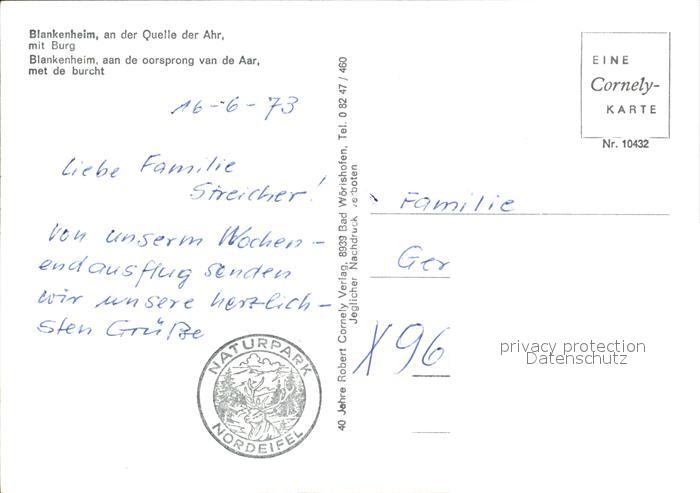 Blankenheim, an der Quelle der Ahr,
mit Burg
Blankenheim, aan de oorsprong van de Aar,
met de burcht
16-6-73
Liebe Familie
Streicher!
von unserm Wochen-
endausflug senden
wir unsere herzlich-
sten Grüße
NATURPARK
NORDEIFEL
40 Jahre Robert Cornely Verlag, 8939 Bad Wörishofen, Tel. 0 82 47 / 460
Jeglicher Nachdruck verboten
EINE
Cornely-
KARTE
Nr. 10432
Familie
Ger
X96
privacy protection
Datenschutz